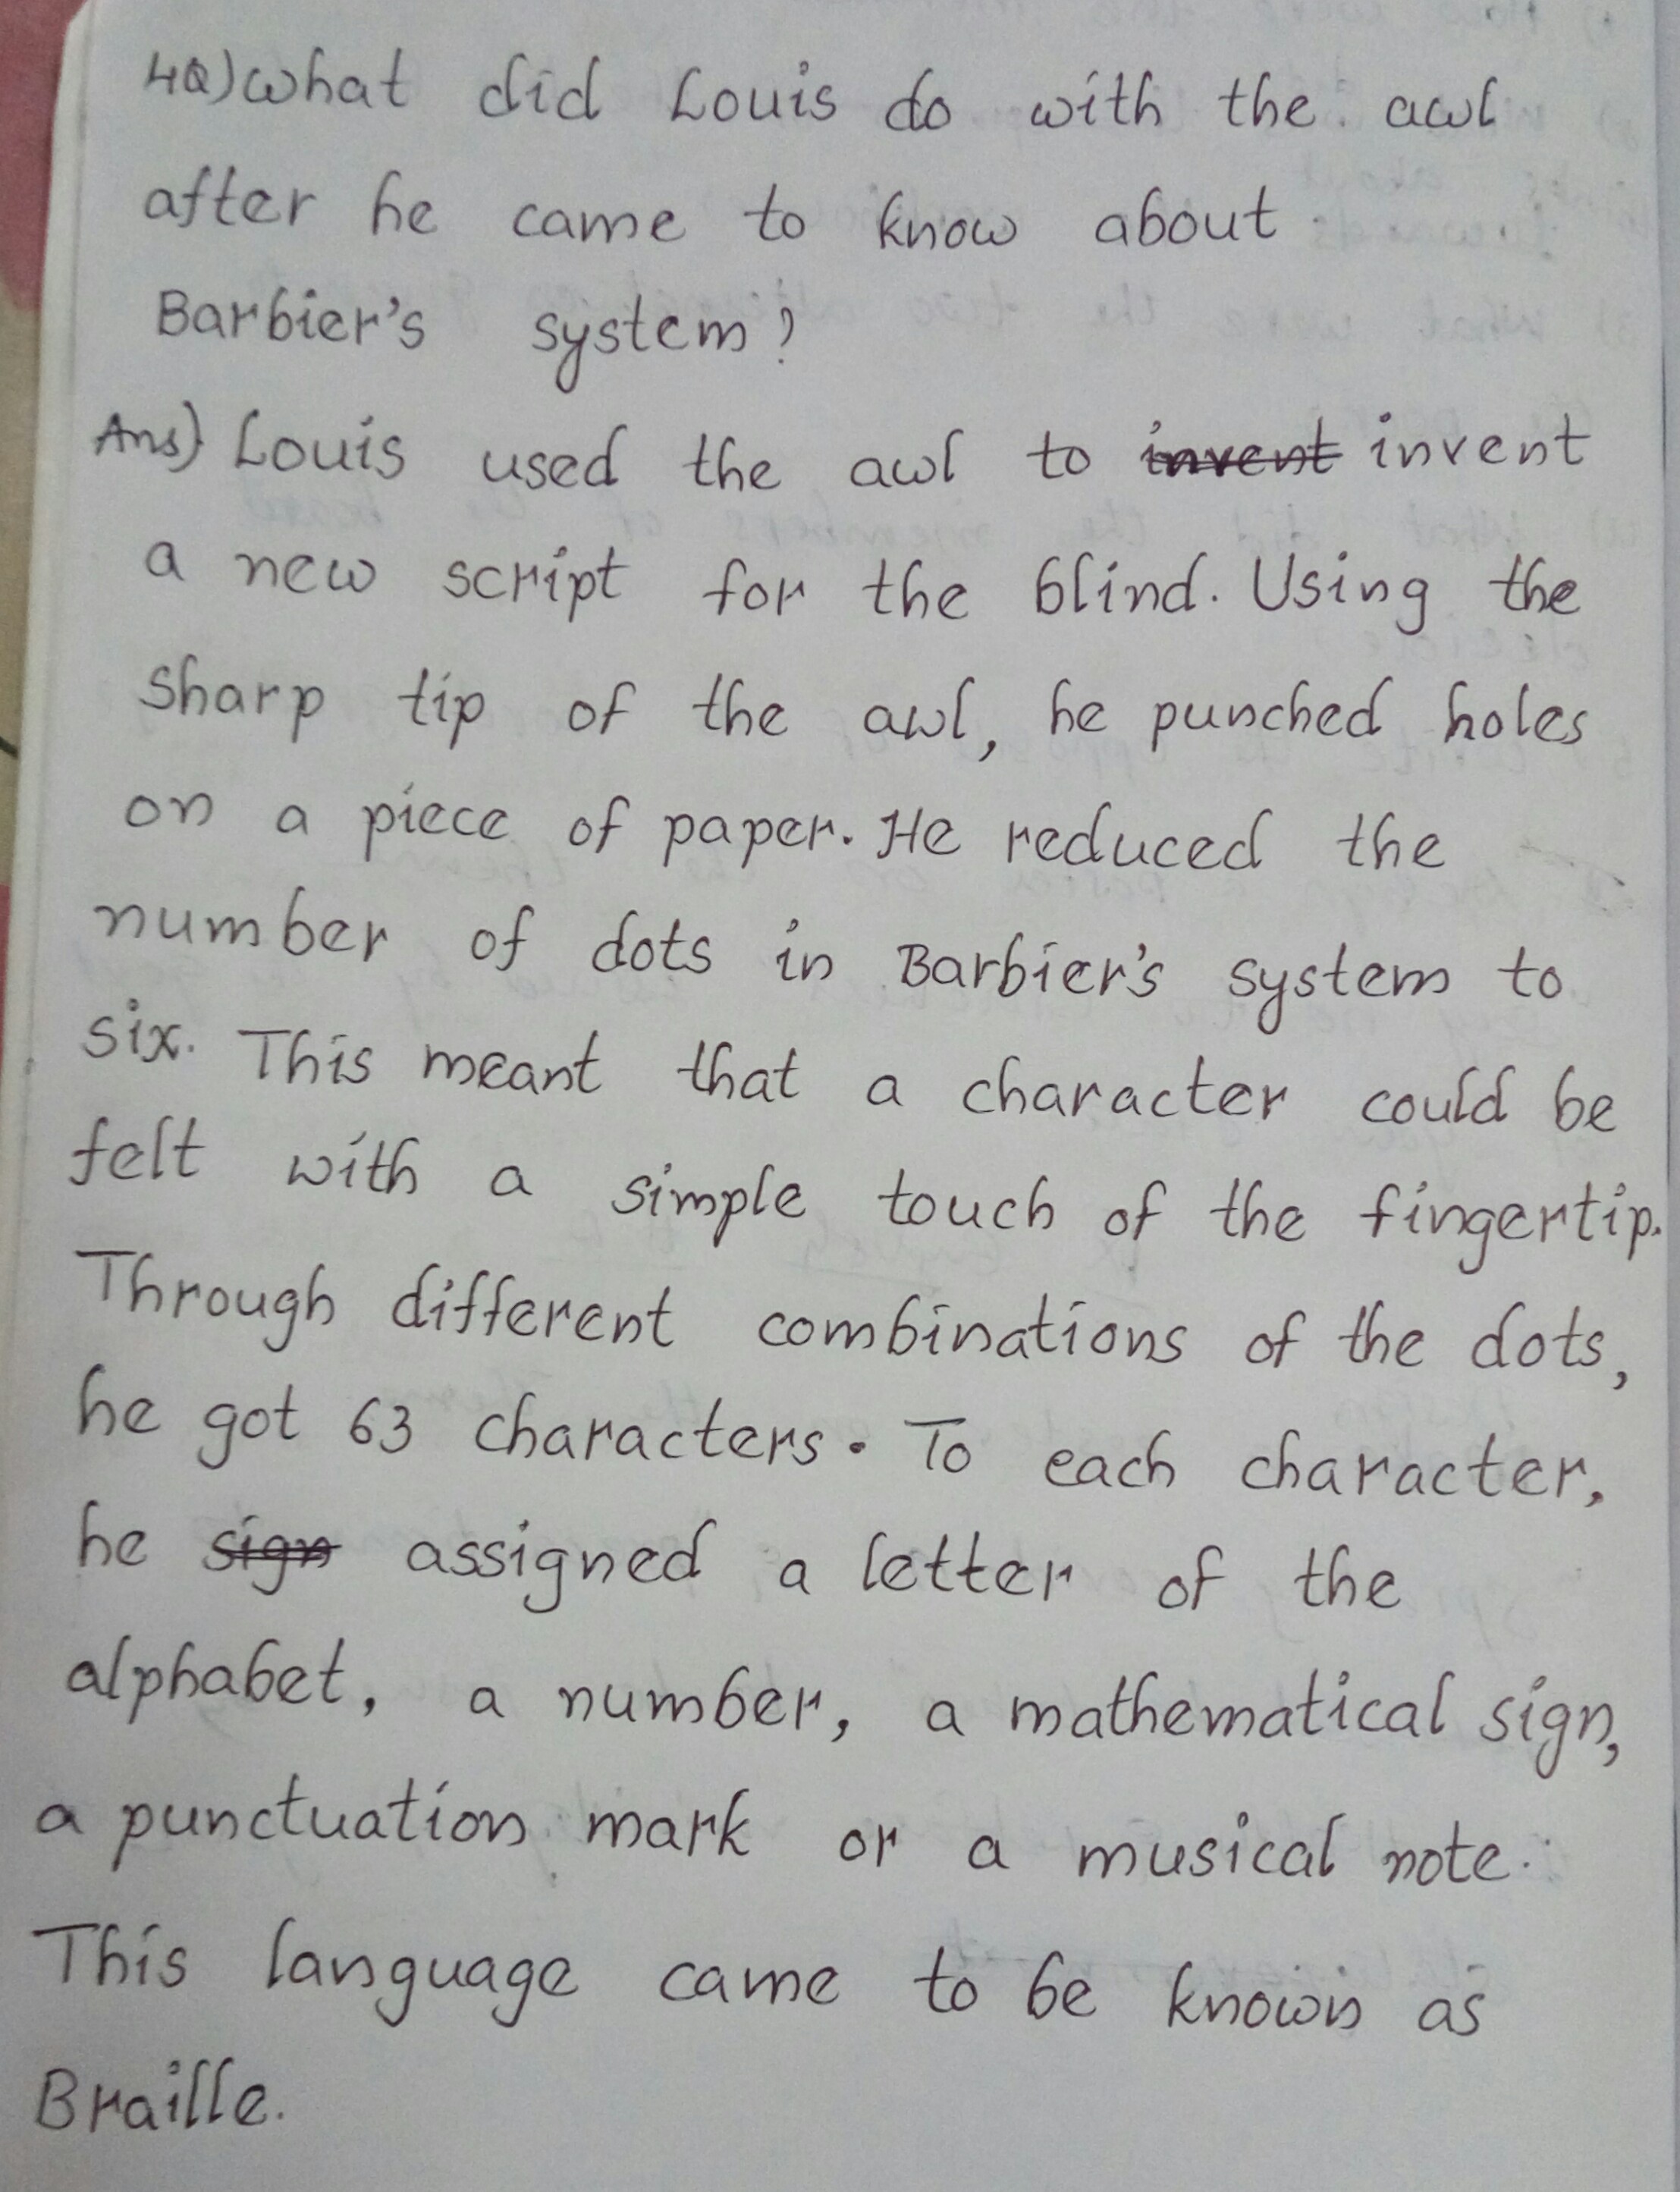 4Q) What did Louis do with the awl
after he came to know about
Barbier's system?
Ans) Louis used the awl to invent invent
a new script for the blind. Using the
sharp tip of the awl, he punched holes
on a piece of paper. He reduced the
number of dots in Barbier's system to
six. This meant that a character could be
felt with a simple touch of the fingertip.
Through different combinations of the dots,
he got 63 characters. To each character,
he sign assigned a letter of the
alphabet, a number, a mathematical sign,
a punctuation mark or a musical note.
This language came to be known as
Braille.